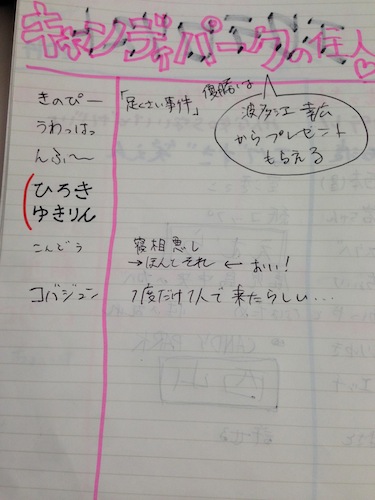 キャンディパークの住人♡
きのぴー
「足くさい事件」
優勝者は
波多江 幸広
からプレゼント
もらえる
うわっはっ
んふ〜〜
ひろき
ゆきりん
こんどう
寝相悪し
→ほんとそれ ← おい!
コバジュン
1度だけ1人で来たらしい…